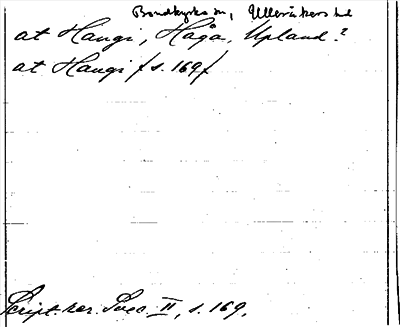 Bondkyrka sn, Ulleråkers hd
at Haugi, Håga, Upland?
at Haugi /s. 169/
Script. rer. Svec. II, s. 169.